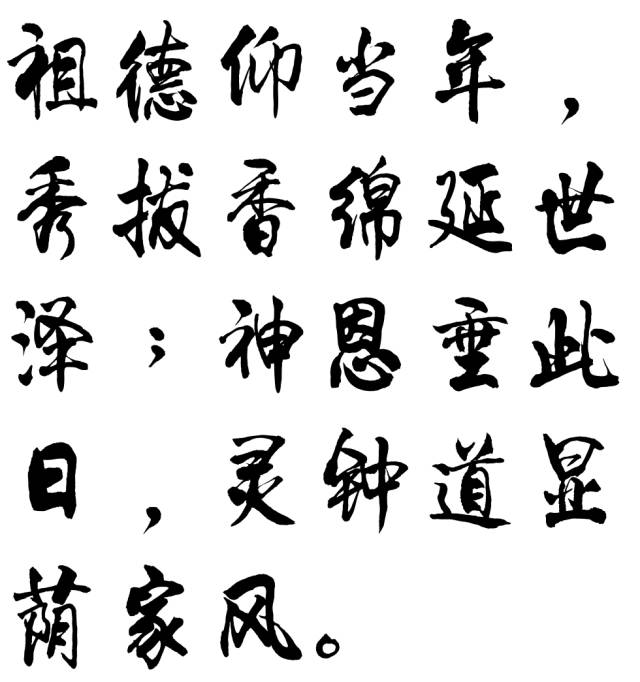 祖德仰当年，
秀拔香绵延世
泽；神恩垂此
日，灵钟道显
荫家风。